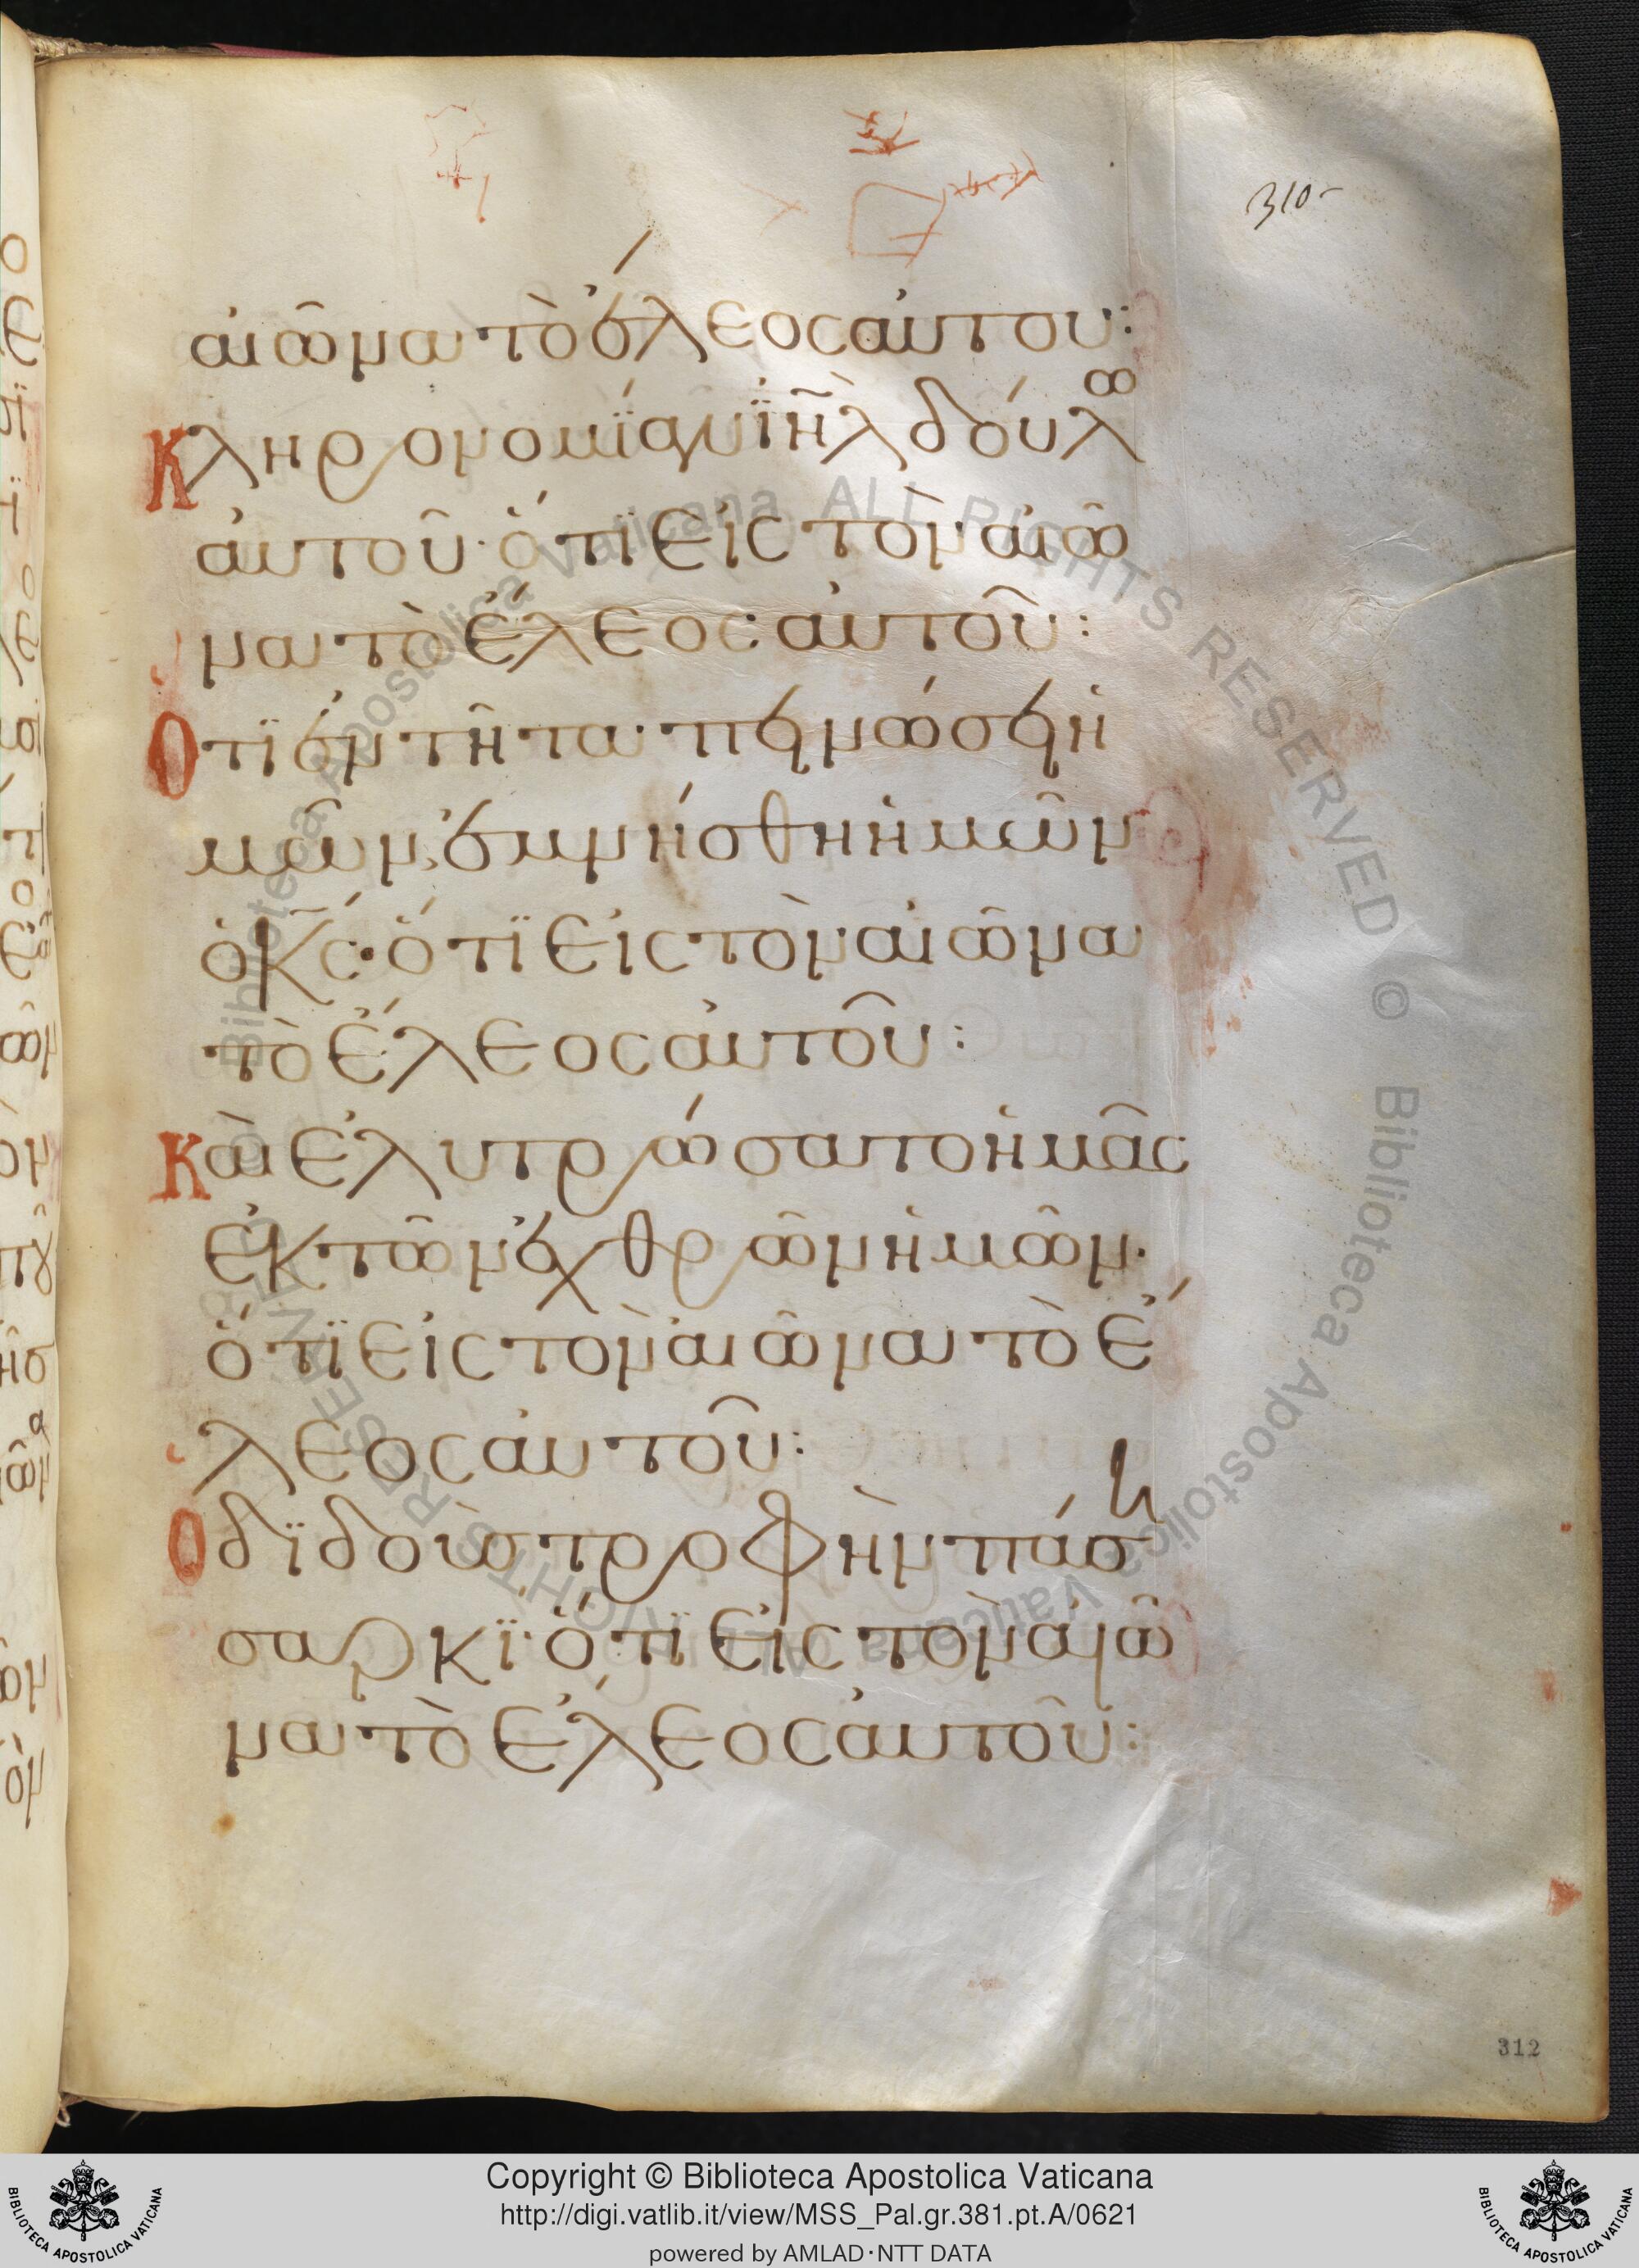 310-
αἰῶνα τὸ ἔλεος αὐτου:
Κληρονομίαν ἰη̃λ δούλω
αὐτοῦ· ὅτϊ εἰς τὸν αἰῶ
να τὸ ἔλεος αὐτοῦ:
Ὅτϊ ἐν τῆ ταπεινώσει ἡ
μῶν, ἐμνήσθη ἡμῶν
ὁ κς· ὅτϊ εἰς τὸν αἰῶνα
τὸ ἔλεος αὐτοῦ:
Καὶ ἐλυτρώσατο ἡμᾶς
ἐκ τῶν ἐχθρῶν ἡμῶν·
ὅτϊ εἰς τὸν αἰῶνα τὸ ἔ
λεος αὐτοῦ:
Ὁ δϊδοὺς τροφὴν πάση
σαρκϊ· ὅτϊ εἰς τὸν αἰῶ
να τὸ ἔλεος αὐτοῦ:
312
Biblioteca Apostolica Vaticana ALL RIGHTS RESERVED ©
Biblioteca Apostolica Vaticana ALL RIGHTS RESERVED ©
BIBLIOTECA APOSTOLICA VATICANA
Copyright © Biblioteca Apostolica Vaticana
http://digi.vatlib.it/view/MSS_Pal.gr.381.pt.A/0621
powered by AMLAD·NTT DATA
BIBLIOTECA APOSTOLICA VATICANA